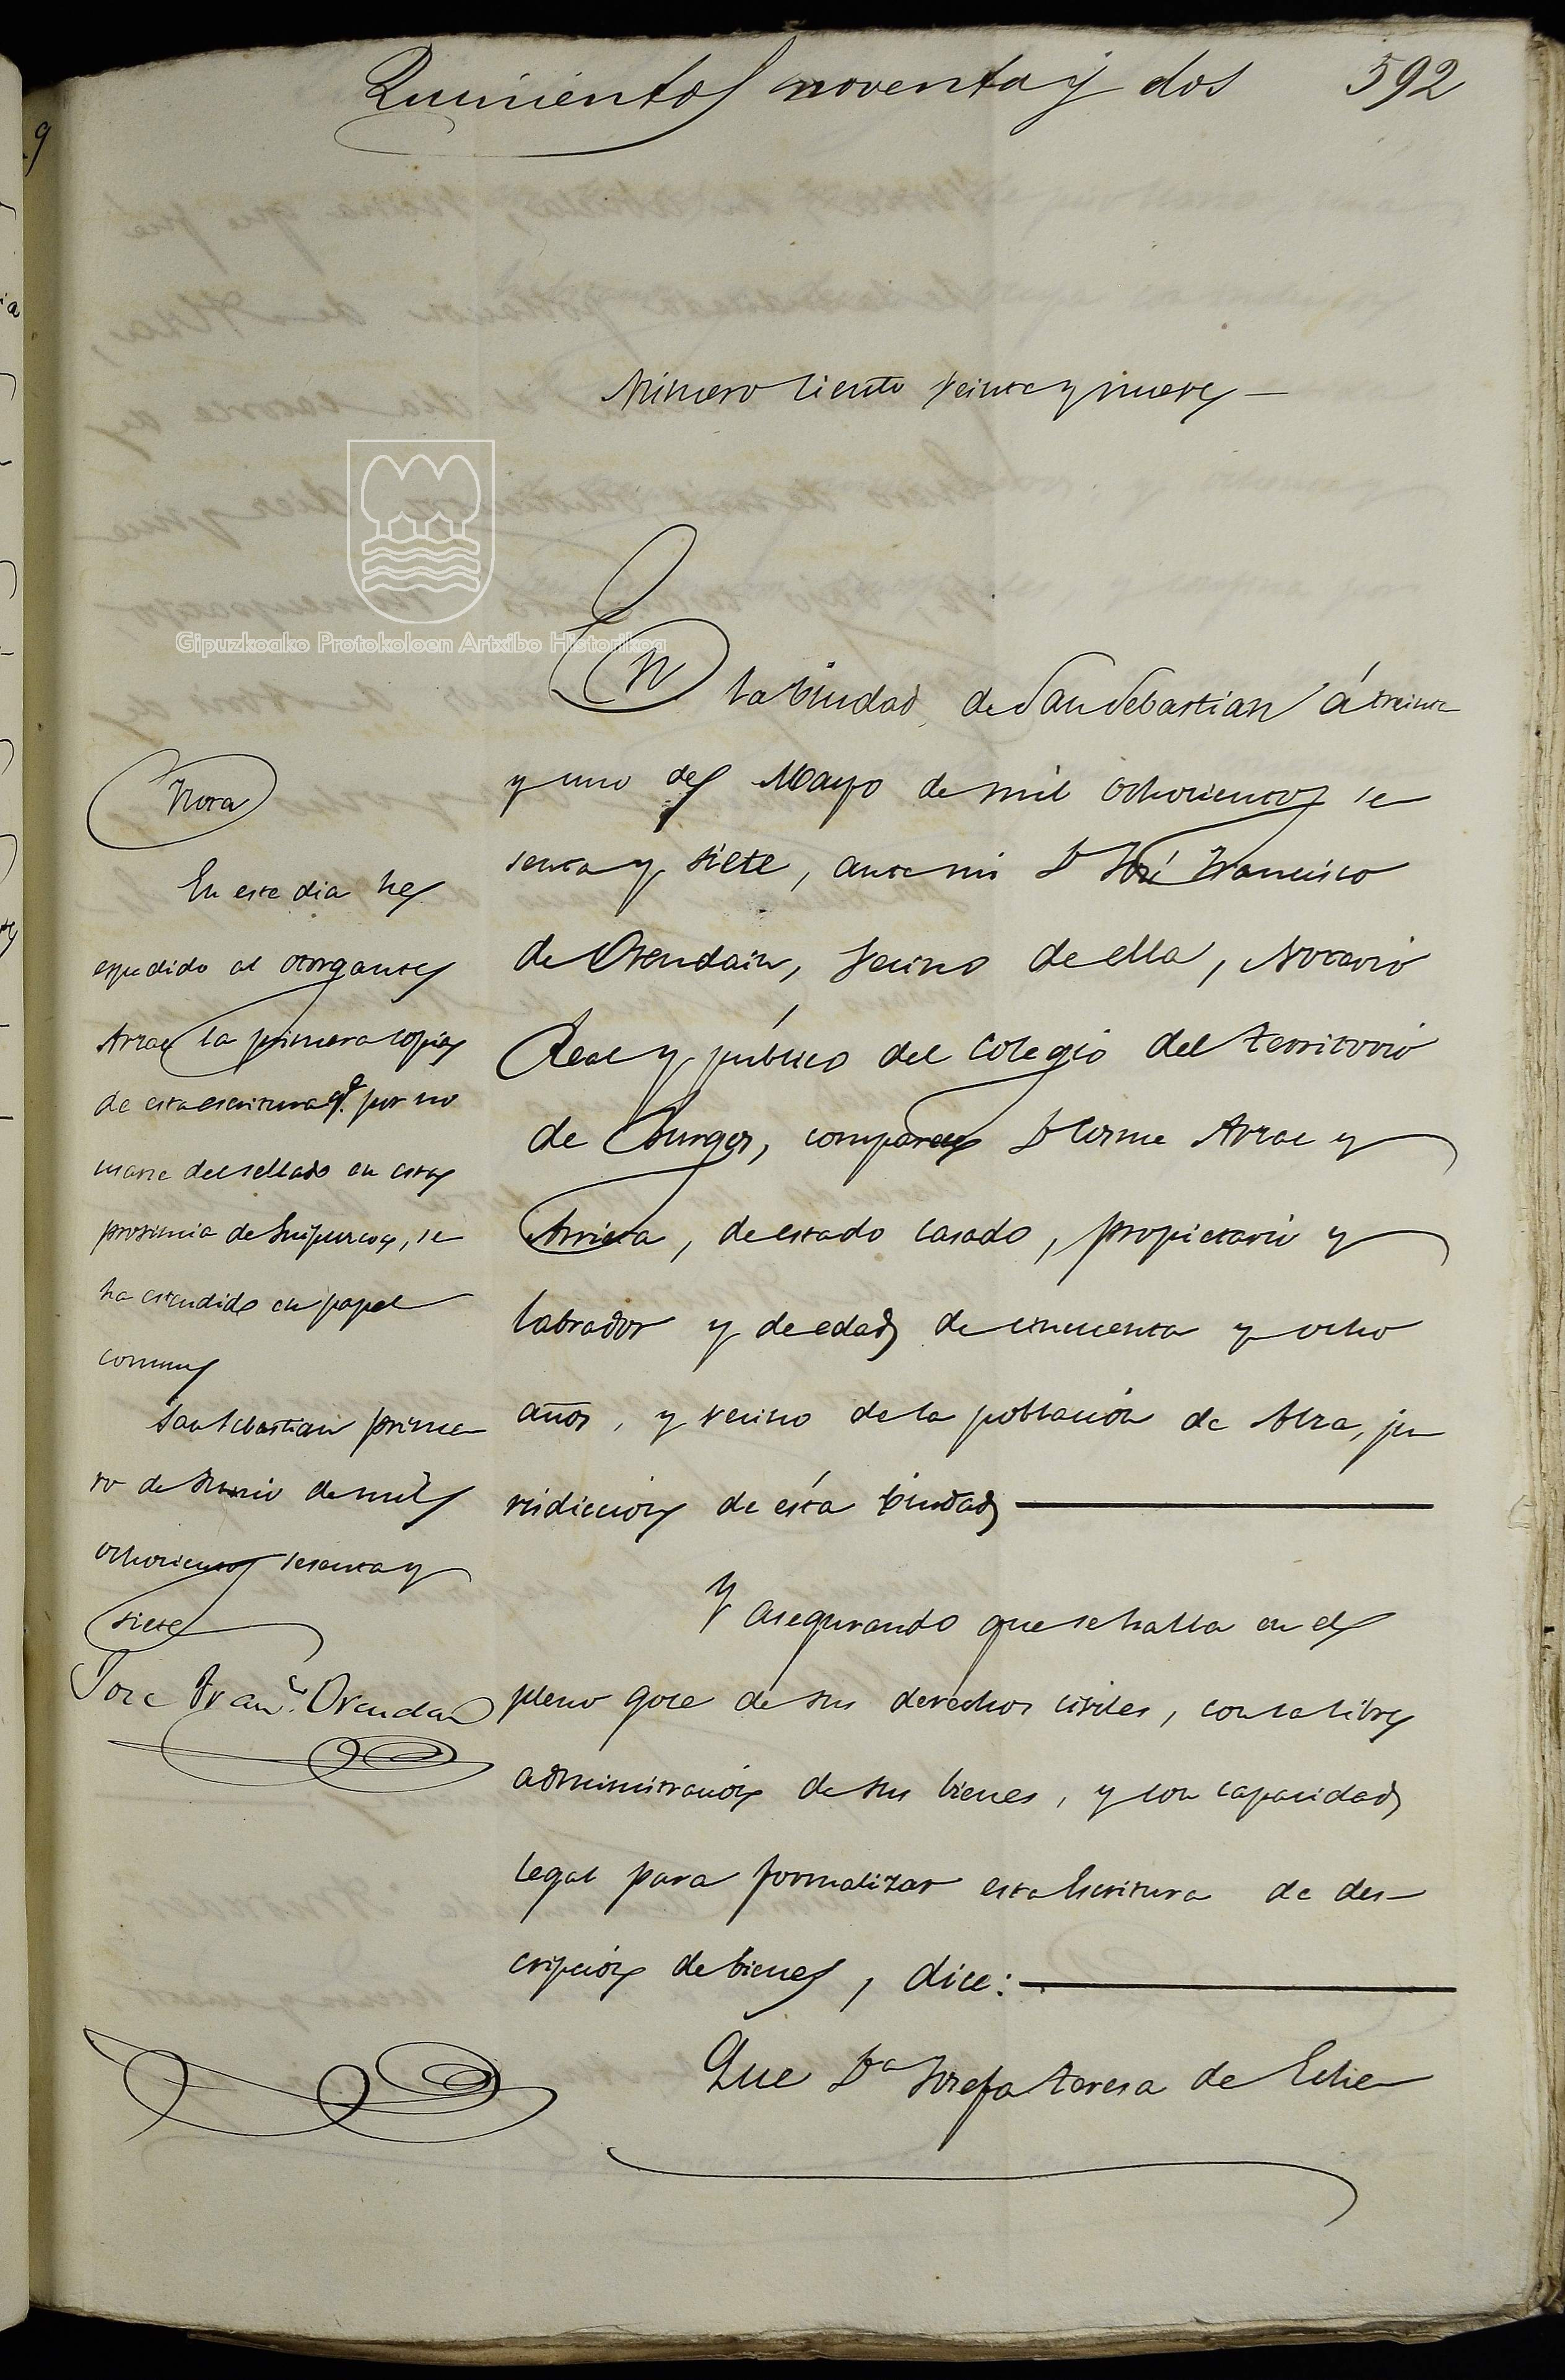 Quinientos noventa y dos 592
Número Ciento veinte y nueve
Gipuzkoako Protokoloen Artxibo Historikoa
En la Ciudad de San Sebastian á treinta
y uno de Mayo de mil ochocientos se
senta y siete, ante mi D José Francisco
de Orendain, vecino de ella, Notario
Real y público del colegio del territorio
de Burgos, comparece D Cosme Arzac y
Arrieta, de estado casado, propietario y
labrador y de edad de cincuenta y ocho
años, y vecino de la población de Alza, ju
risdiccion de esta Ciudad
Y asegurando que se halla en el
pleno goce de sus derechos civiles, con la libre
administración de sus bienes, y con capacidad
legal para formalizar esta Escritura de des-
cripción de bienes, dice:
Que Dª Josefa Teresa de Eche
Nota
En este dia he
espedido al otorgante
Arzac la primera copia
de esta escritura q.e por no
usarse del sellado en esta
provincia de Guipuzcoa, se
ha estendido en papel
comun
San Sebastian prime
ro de Junio de mil
ochocientos sesenta y
siete
Jose Fran.co Orendain